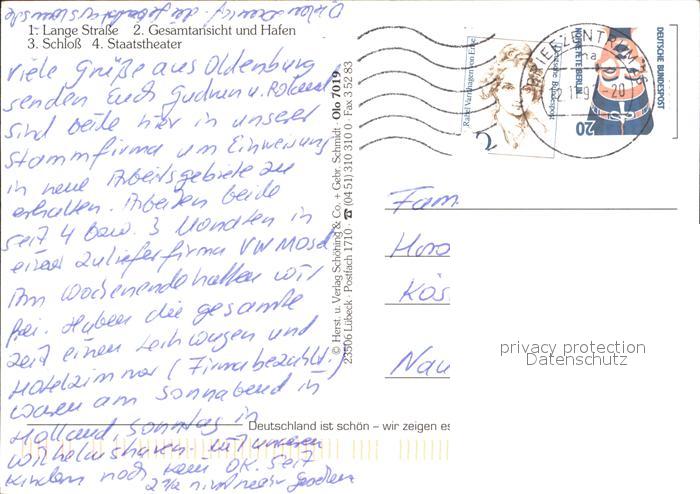 1. Lange Straße 2. Gesamtansicht und Hafen
3. Schloß 4. Staatstheater
Viele Grüße aus Oldenburg
senden Euch Gudrun u. Roland
sind beide hier in unserer
Stammfirma um Einweisung
in neue Arbeitsgebiete zu
erhalten. Arbeiten beide
seit 4 bzw. 3 Monaten in
einer Zulieferfirma VW Mosel
Am Wochenende hatten wir
frei. Haben die gesamte
Zeit einen Leihwagen und
Hotelzimmer (Firma bezahlt.)
waren am Sonnabend in
Holland, Sonntag in
Wilhelmshaven. mit unseren
Kindern noch kom OK. seit
2 1/2 nicht mehr gesehen
Deutschland ist schön – wir zeigen es
© Herst. u. Verlag Schöning & Co. + Gebr. Schmidt · Olo 7019
23506 Lübeck · Postfach 1710 · ☎ (04 51) 310 310 0 · Fax 3 52 83
Rahel Varnhagen von Ense
Deutsche Bundespost
2
BRIEFZENTRUM
20
DEUTSCHE BUNDESPOST
20
Fam
Hora
Kös
Nau
privacy protection
Datenschutz